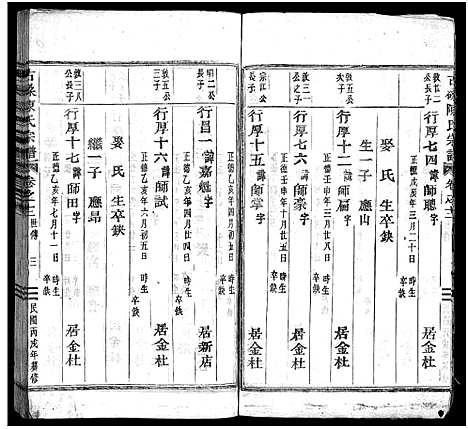 古磉陳氏宗譜 卷之十三
敦廿二公長子
行厚七四 諱師聰 字
正德戊辰年三月二十日 時生 卒缺
居金杜
娶 氏 生卒缺
生一子 應山
敦五公次子
行厚十二 諱師扁 字
正德壬申年三月廿八日 時生 卒缺
居金杜
敦一公之子
行厚六
正德壬申年 月初三日 時生 卒缺
居金杜
宗江公長子
行厚十五 諱師 字
時生 卒缺
居金杜
明二公長子
行昌一 諱嘉魁 字
正德乙亥年四月廿四日 時生 卒缺
居新店
敦五公三子
行厚十六 諱師試
正德乙亥年六月初五日 時生 卒缺
居金杜
娶 氏 生卒缺
繼一子 應昴
敦三八公長子
行厚十七 諱師田 字
正德乙亥年七月十一日 時生 卒缺
居金杜
古磉陳氏宗譜 卷之十三 世傳 三 民國丙戌年纂修